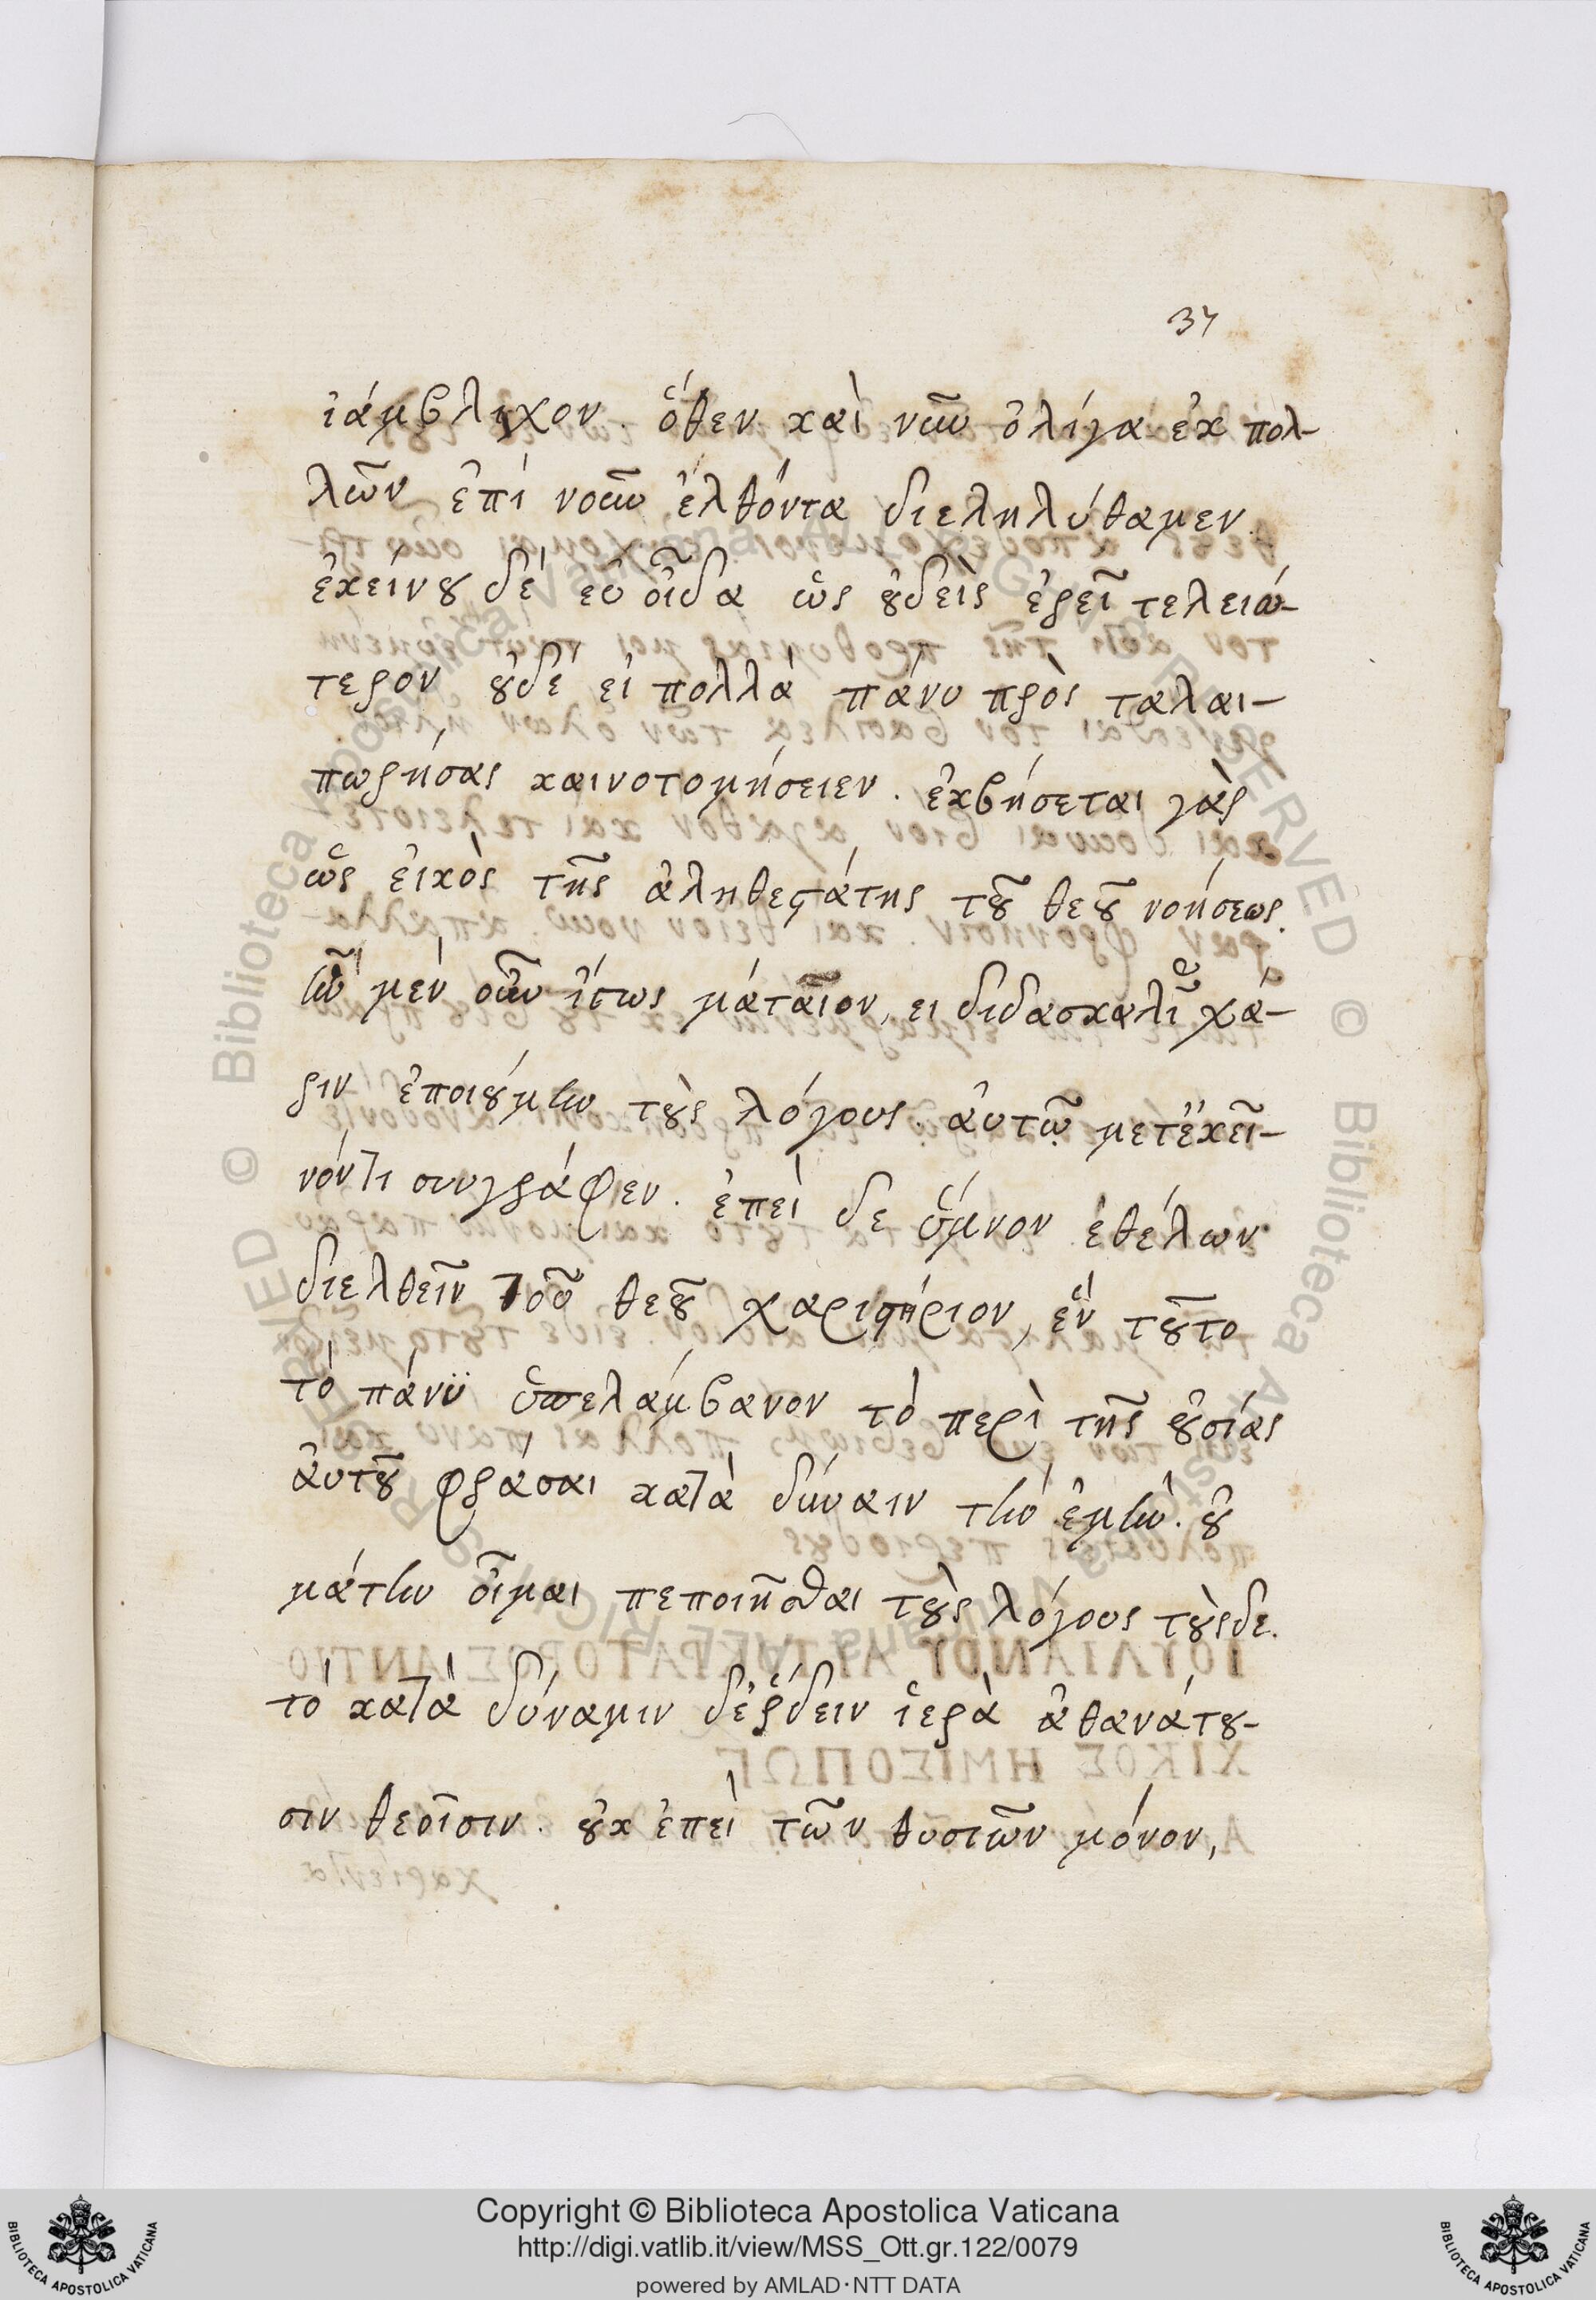 37
ἰάμβλιχον. ὅθεν καὶ νῶν ὀλίγα ἐκ πολ-
λῶν ἐπὶ νοῶν ἐλθόντα διεληλύθαμεν.
ἐκείνου δὲ εὖ οἶδα ὡς οὐδεὶς ἐρεῖ τελειώ-
τερον οὐδὲ εἰ πολλὰ πάνυ πρὸς ταλαι-
πωρήσας καινοτομήσειεν. ἐκβήσεται γὰρ
ὡς εἰκὸς τῆς ἀληθεστάτης τοῦ θεοῦ νοήσεως.
ἦν μὲν οὖν ἴσως μάταιον, ει διδασκαλι χά-
ριν ἐποιούμην τοὺς λόγους. αὐτῷ μετ ἐκεῖ-
νόντι συγγράφεν. ἐπεὶ δε ὕμνον ἐθέλων
διελθεῖν τοῦ θεοῦ χαριστήριον, ἐν τοῦτο
τὸ πάνϋ ὑπελάμβανον τὸ περὶ τῆς οὐσίας
αὐτοῦ φράσαι κατὰ δύναιν τὴν ἐμὴν. οὐ
μάτην οἶμαι πεποιῆσθαι τοὺς λόγους τοὺς δε.
τὸ κατὰ δύναμιν δ ἔρδειν ἱερὰ ἀθανάτου-
σιν θεοῖσιν. οὐκ ἐπεὶ τῶν θυσιῶν μόνον,
Copyright © Biblioteca Apostolica Vaticana
http://digi.vatlib.it/view/MSS_Ott.gr.122/0079
powered by AMLAD·NTT DATA